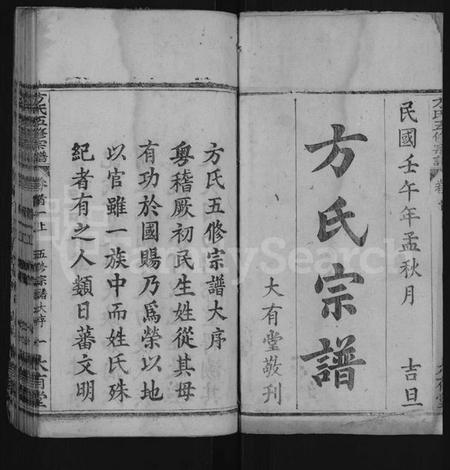 方氏五修宗譜 卷首
民國壬午年孟秋月 吉旦
方氏宗譜
大有堂敬刊
方氏五修宗譜大序
粵稽厥初民生姓從其母
有功於國賜乃爲榮以地
以官雖一族中而姓氏殊
紀者有之人類日蕃文明
方氏五修宗譜 卷首上 五修宗譜大序 一 大有堂
FamilySearch